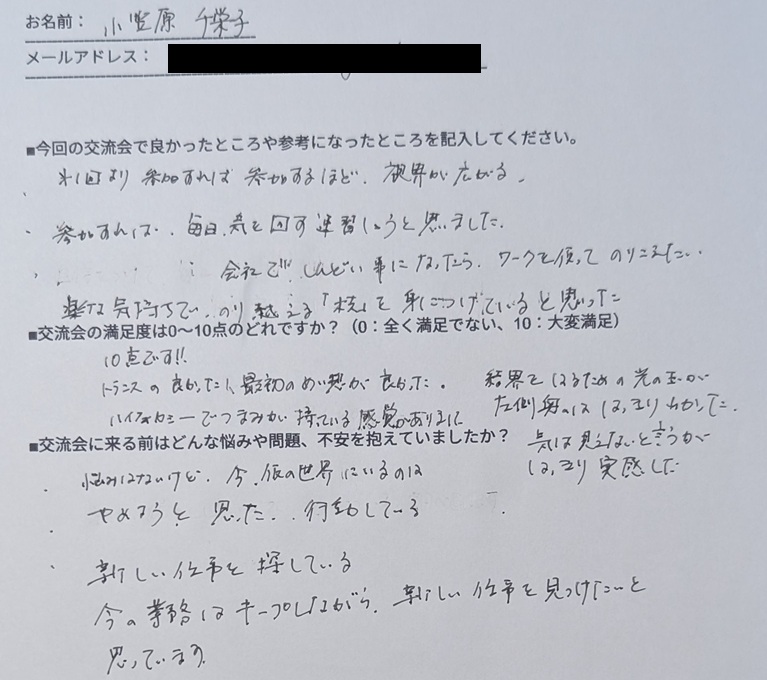 お名前： 小笠原 千栄子
メールアドレス：
■今回の交流会で良かったところや参考になったところを記入してください。
参加すれば 参加するほど、視界が広がる。
参加すれば、毎日、気を回す練習しようと思いました。
会社で しんどい事になったら、ワークを使って のりこえたい。
楽な気持ちで、のり越える「技」を身につけていると思った
■交流会の満足度は0～10点のどれですか？（0：全く満足でない、10：大変満足）
10点です!!
トランスの良かった 最初の が良かった。
でつまみが 持っている感覚がありました
結界をはるための光の玉が
左側 はっきりわかった。
気は見えないと言うが
はっきり実感した
■交流会に来る前はどんな悩みや問題、不安を抱えていましたか？
悩みはないけど、今、仮の世界にいるのは
やめようと思った、行動している
新しい仕事を探している
今の業務はキープしながら、新しい仕事を見つけたいと
思っています。